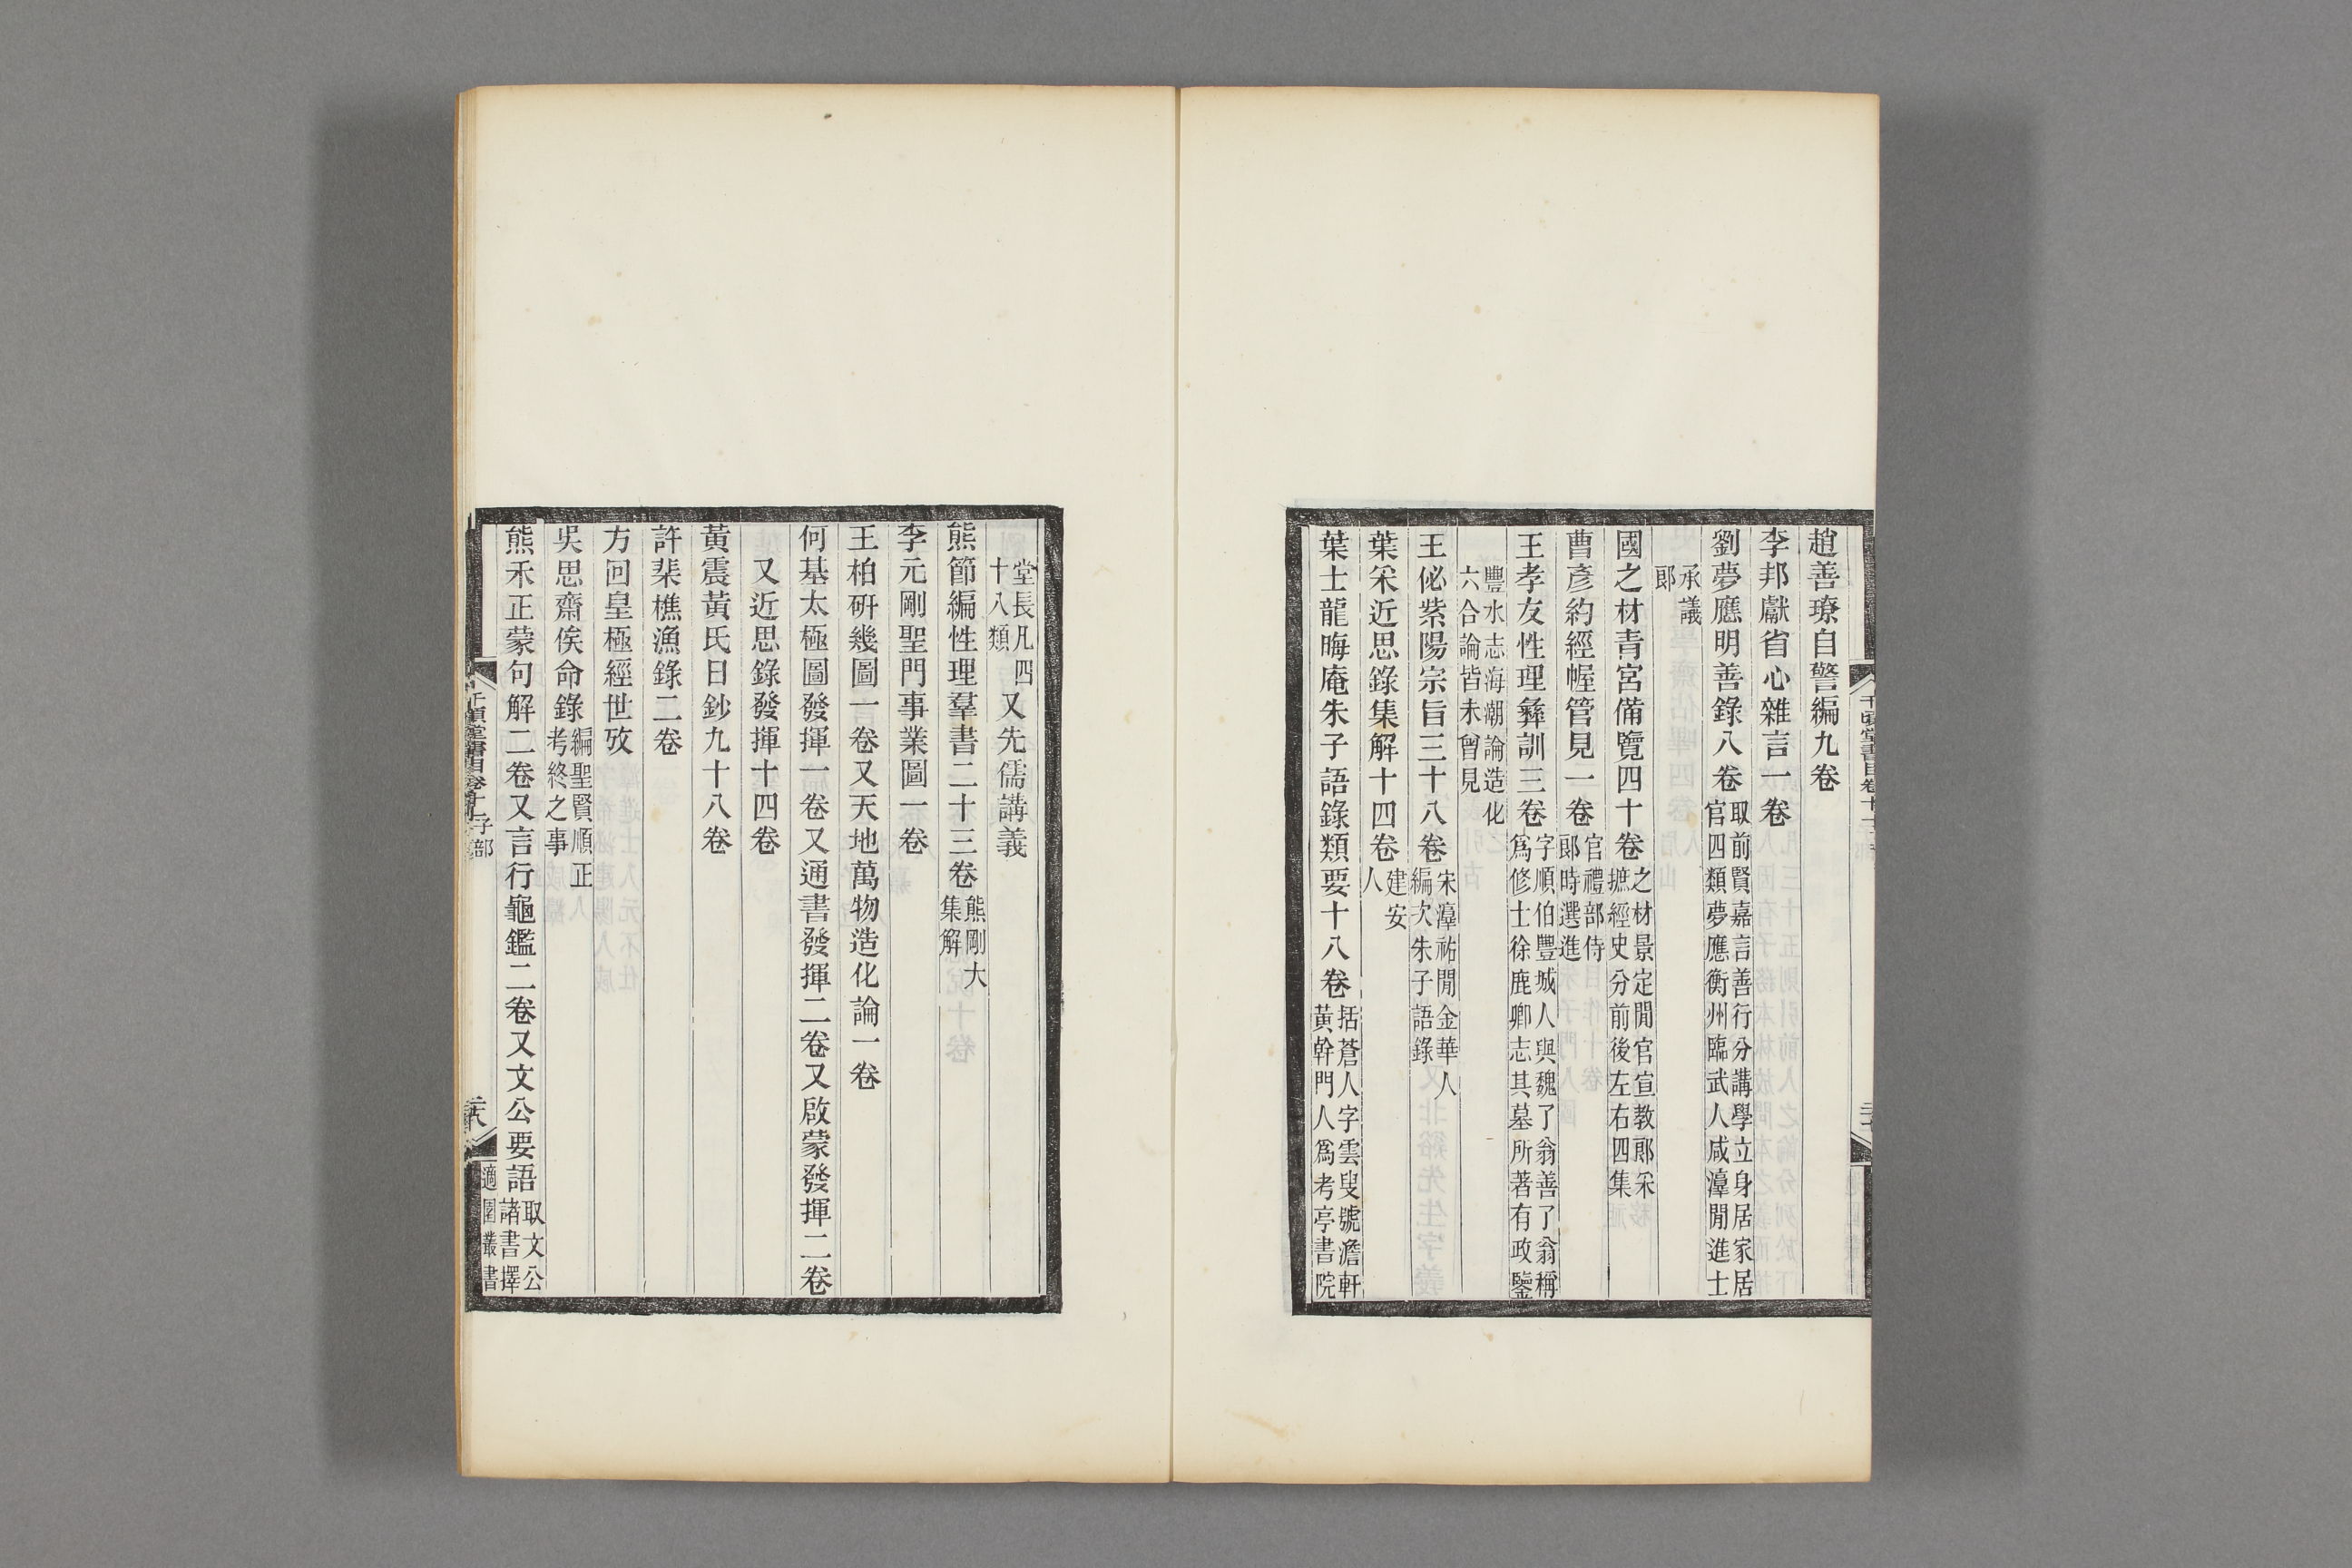 趙善璙自警編九卷
李邦獻省心雜言一卷
劉夢應明善錄八卷取前賢嘉言善行分講學立身居家居官四類夢應衡州臨武人咸湻閒進士
承議郎
國之材青宮備覽四十卷之材景定閒官宣教郎采摭經史分前後左右四集
曹彥約經幄管見一卷官禮部侍郎時選進
王孝友性理彝訓三卷字順伯豐城人與魏了翁善了翁稱爲修士徐鹿卿志其墓所著有政鑒
豐水志海潮論造化六合論皆未曾見
王佖紫陽宗旨三十八卷宋湻祐閒金華人編次朱子語錄
葉采近思錄集解十四卷建安人
葉士龍晦庵朱子語錄類要十八卷括蒼人字雲叟號澹軒黃幹門人爲考亭書院
堂長凡四十八類又先儒講義
熊節編性理羣書二十三卷熊剛大集解
李元剛聖門事業圖一卷
王柏硏幾圖一卷又天地萬物造化論一卷
何基太極圖發揮一卷又通書發揮二卷又啟蒙發揮二卷
又近思錄發揮十四卷
黃震黃氏日鈔九十八卷
許棐樵漁錄二卷
方回皇極經世攷
吳思齋俟命錄編聖賢順正考終之事
熊禾正蒙句解二卷又言行龜鑑二卷又文公要語取文公諸書擇
千頃堂書目卷十一子部
二十八
適園叢書